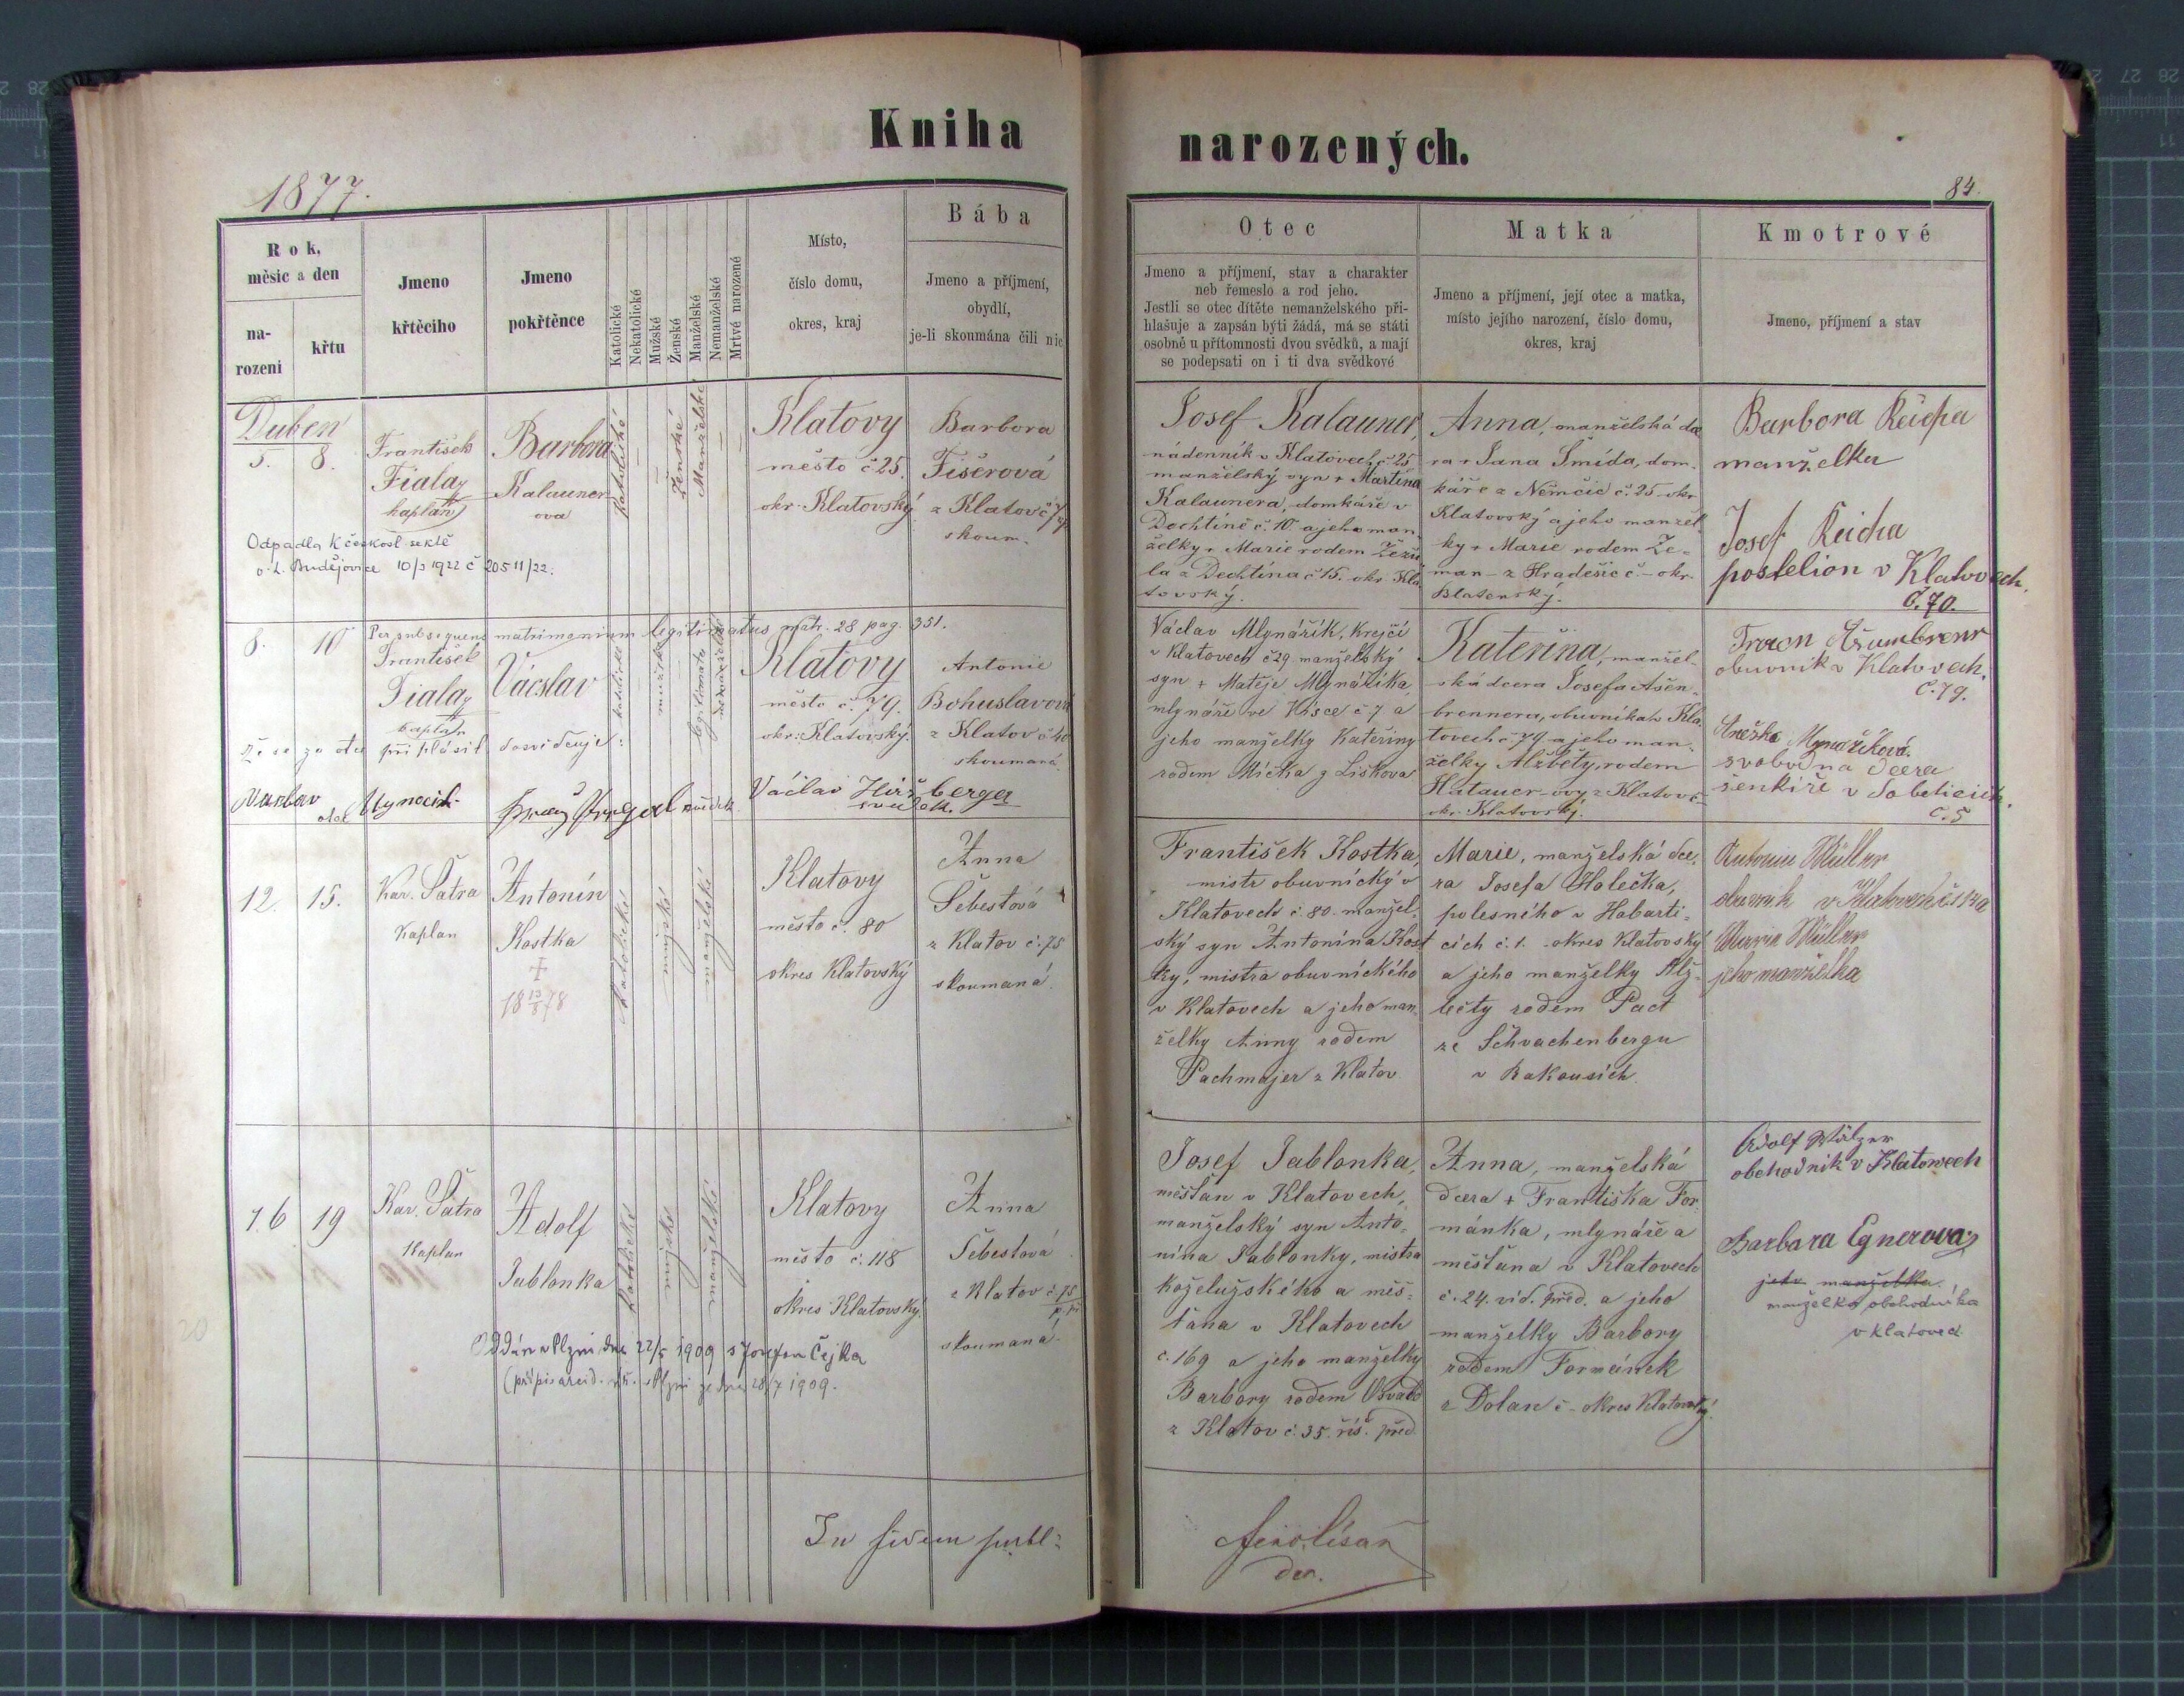 Kniha narozených.
1877.
84.
Rok, měsíc a den
narozeni
křtu
Jmeno křtěcího
Jmeno pokřtěnce
Katolické
Nekatolické
Mužské
Ženské
Manželské
Nemanželské
Mrtvé narozené
Místo,
číslo domu,
okres, kraj
Bába
Jmeno a příjmení,
obydlí,
je-li skoumána čili nic
Otec
Jmeno a příjmení, stav a charakter
neb řemeslo a rod jeho.
Jestli se otec dítěte nemanželského při-
hlašuje a zapsán býti žádá, má se státi
osobně u přítomnosti dvou svědků, a mají
se podepsati on i ti dva svědkové
Matka
Jmeno a příjmení, její otec a matka,
místo jejího narození, číslo domu,
okres, kraj
Kmotrové
Jmeno, příjmení a stav
Duben
5. 8.
František
Fiala
kaplan
Barbora
Kalauner
ova
Katolické
Ženské
Manželské
Klatovy
město č 25
okr. Klatovský
Barbora
Fišerová
z Klatov č 74
skoum.
Odpadla k českosl. sektě
v Č. Budějovice 10/3 1922 č 20511/22.
Josef Kalauner,
nádenník v Klatovech č. 25
manželský syn + Martina
Kalaunera, domkáře v
Dechtíně č. 10 a jeho man
želky + Marie rodem Žeži
la z Dechtína č 15. okr. Kla
tovský.
Anna, manželská dce
ra + Jana Šmída, dom-
káře z Němčic č. 25 okr
Klatovský a jeho manžel-
ky + Marie rodem Ze-
man - z Hradešic č - okr.
Blatenský.
Barbora Reicha
manželka
Josef Reicha
postelion v Klatovech.
č. 70.
8. 10
Per subsequens matrimonium legitimatus matr. 28 pag. 351.
František
Fiala
kaplan
Václav
katolické
mužské
legitimato
nemanželské
Klatovy
město č. 79.
okr. Klatovský.
Antonie
Bohuslavová
z Klatov č 40
skoumaná
Že se za otce přihlásil dosvědčuje:
otec
svědek
Václav Hiršberger
svědek.
Václav Mlynářík, krejčí
v Klatovech č 29 manželský
syn + Matěje Mlynáříka,
mlynáře ve Vísce č 7 a
jeho manželky Kateřiny
rodem Mička z Liškova
Kateřina, manžel-
ská dcera Josefa Ašen-
brennera, obuvníka v Kla
tovech č 79 a jeho man-
želky Alžběty, rodem
Hatauer-ovy z Klatov č
okr. Klatovský.
obuvník v Klatovech.
č. 79.
Anežka Mlynaříková
svobodna dcera
šenkíře v Soběticích.
č. 5
12. 15.
Kar. Šatra
Kaplan
Antonín
Kostka
†
18 13/8 78
Katolické
mužské
manželské
Klatovy
město č. 80
okres Klatovský
Anna
Šebestová
z Klatov č. 75
skoumaná.
František Kostka,
mistr obuvnický v
Klatovech č. 80. manžel-
ský syn Antonína Kost
ky, mistra obuvnického
v Klatovech a jeho man-
želky Anny rodem
Pachmajer z Klatov.
Marie, manželská dce-
ra Josefa Holečka,
polesného v Habarti-
cích č. 1. okres Klatovský
a jeho manželky Alž-
běty rodem Pact
ze Schvachenbergu
v Rakousích.
Antonin Müller
obuvnik v Klatovech č 134
Marie Müller
jeho manželka
16 19
Kar. Šatra
Kaplan
Adolf
Jablonka
Katolické
mužské
manželské
Klatovy
město č. 118
okres Klatovský.
Anna
Šebestová
z Klatov č. 75
skoumaná.
Oddán v Plzni dne 22/5 1909 s Josefou Čejka
(přípis arcid. v Plzni ze dne 28/7 1909.
Josef Jablonka,
měšťan v Klatovech,
manželský syn Anto-
nína Jablonky, mistra
koželužského a měš-
ťana v Klatovech
č. 169 a jeho manželky
Barbory rodem Osvald
z Klatov č. 35. říš. před.
Anna, manželská
dcera + Františka For-
mánka, mlynáře a
měšťana v Klatovech
č. 24. víd. před. a jeho
manželky Barbory
rodem Formánek
z Dolan č - okres Klatovský.
Adolf
obchodník v Klatovech
Barbara Egnerova
jeho manželka.
manželka obchodníka
v Klatovech
In fidem publ: